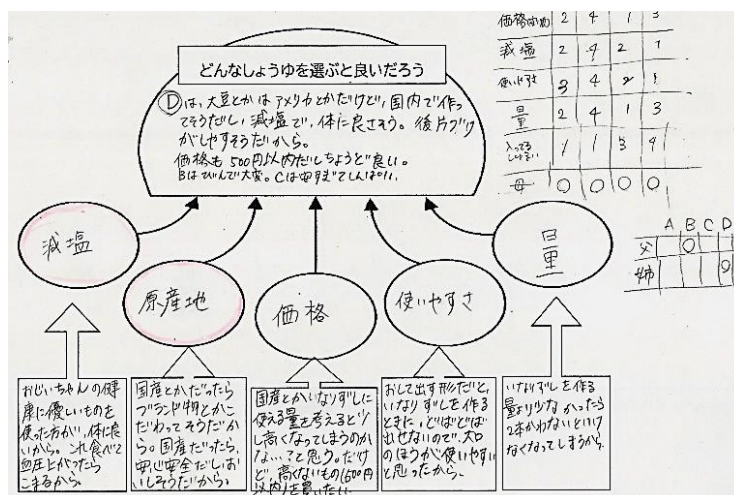 どんなしょうゆを選ぶと良いだろう
Ⓓは、大豆とかはアメリカとかだけど、国内で作っ
てそうだし、減塩で、体に良さそう。後片づけ
がしやすそうだから。
価格も500円以内だしちょうど良い。
Bはびんで大変。Cは安すぎてしんぱい。
減塩
原産地
価格
使いやすさ
量
おじいちゃんの健
康に優しいものを
使った方が、体に良
いから。これ食べて
血圧上がったら
こまるから。
国産とかだったら
ブランド物とかこ
だわってそうだか
ら。国産だったら、
安心安全だしお
いしそうだから。
国産とかいなりずしに
使える量を考えると少
し高くなってしまうのか
な…?と思う。だけ
ど、高くないもの(600円
以内)を買いたい。
おして出す形だと、
いなりずしを作る
ときに、どばどば
出せないので、大口
のほうが使いやすい
と思ったから。
いなりずしを作る
量より少なかったら
2本かわないといけ
なくなってしまうから。
価格 2 4 1 3
減塩 2 4 2 1
使いやすさ 3 4 2 1
量 2 4 1 3
入ってる 1 1 3 4
母 〇 〇 〇 〇
A B C D
父 〇
姉 〇